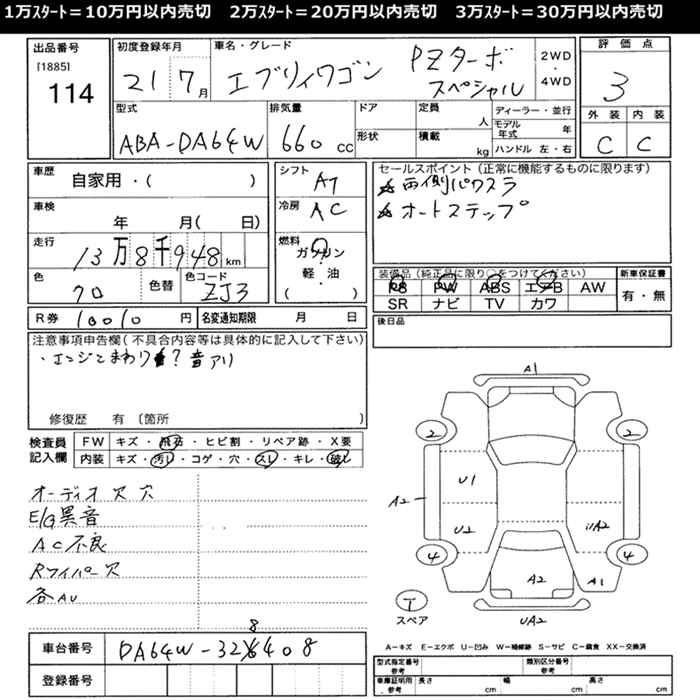 1万ｽﾀｰﾄ＝10万円以内売切　2万ｽﾀｰﾄ＝20万円以内売切　3万ｽﾀｰﾄ＝30万円以内売切
出品番号
[1885]
114
初度登録年月
21 7月
車名・グレード
エブリィワゴン PZターボ
スペシャル
2WD
4WD
評価点
3
外装 内装
C C
型式
ABA-DA64W
排気量
660 CC
ドア
形状
定員
人
積載
kg
ディーラー・並行
モデル年式 年
ハンドル 左・右
車歴
自家用・( )
車検
年 月( 日)
走行
13万8千948km
色
クロ
色替
色コード
ZJ3
シフト
AT
冷房
AC
燃料
ガソリン
軽・油
( )
セールスポイント（正常に機能するものに限ります）
☆両側パワスラ
☆オートステップ
装備品（純正品に限り○をつけてください）
PS PW ABS エアB AW
SR ナビ TV カワ
新車保証書
有・無
R券 10010 円
名変通知期限 月 日
後日品
注意事項申告欄（不具合内容等は具体的に記入して下さい）
・エンジンまわり ? 音アリ
修復歴 有〔箇所 〕
検査員
記入欄
FW キズ・飛石・ヒビ割・リペア跡・X要
内装 キズ・汚レ・コゲ・穴・スレ・キレ・破レ
オーディオ欠 穴
E/G異音
AC不良
Rワイパー欠
各AU
A1
2 2
U1
A2
U2
UA2
4 4
A2
A1
T
スペア
UA2
車台番号 DA64W-328408
8
登録番号
A－キズ E－エクボ U－凹み W－補修跡 S－サビ C－腐食 XX－交換済
型式指定番号
参考
類別区分番号
参考
車庫証明用
参考
長さ cm 幅 cm 高さ cm